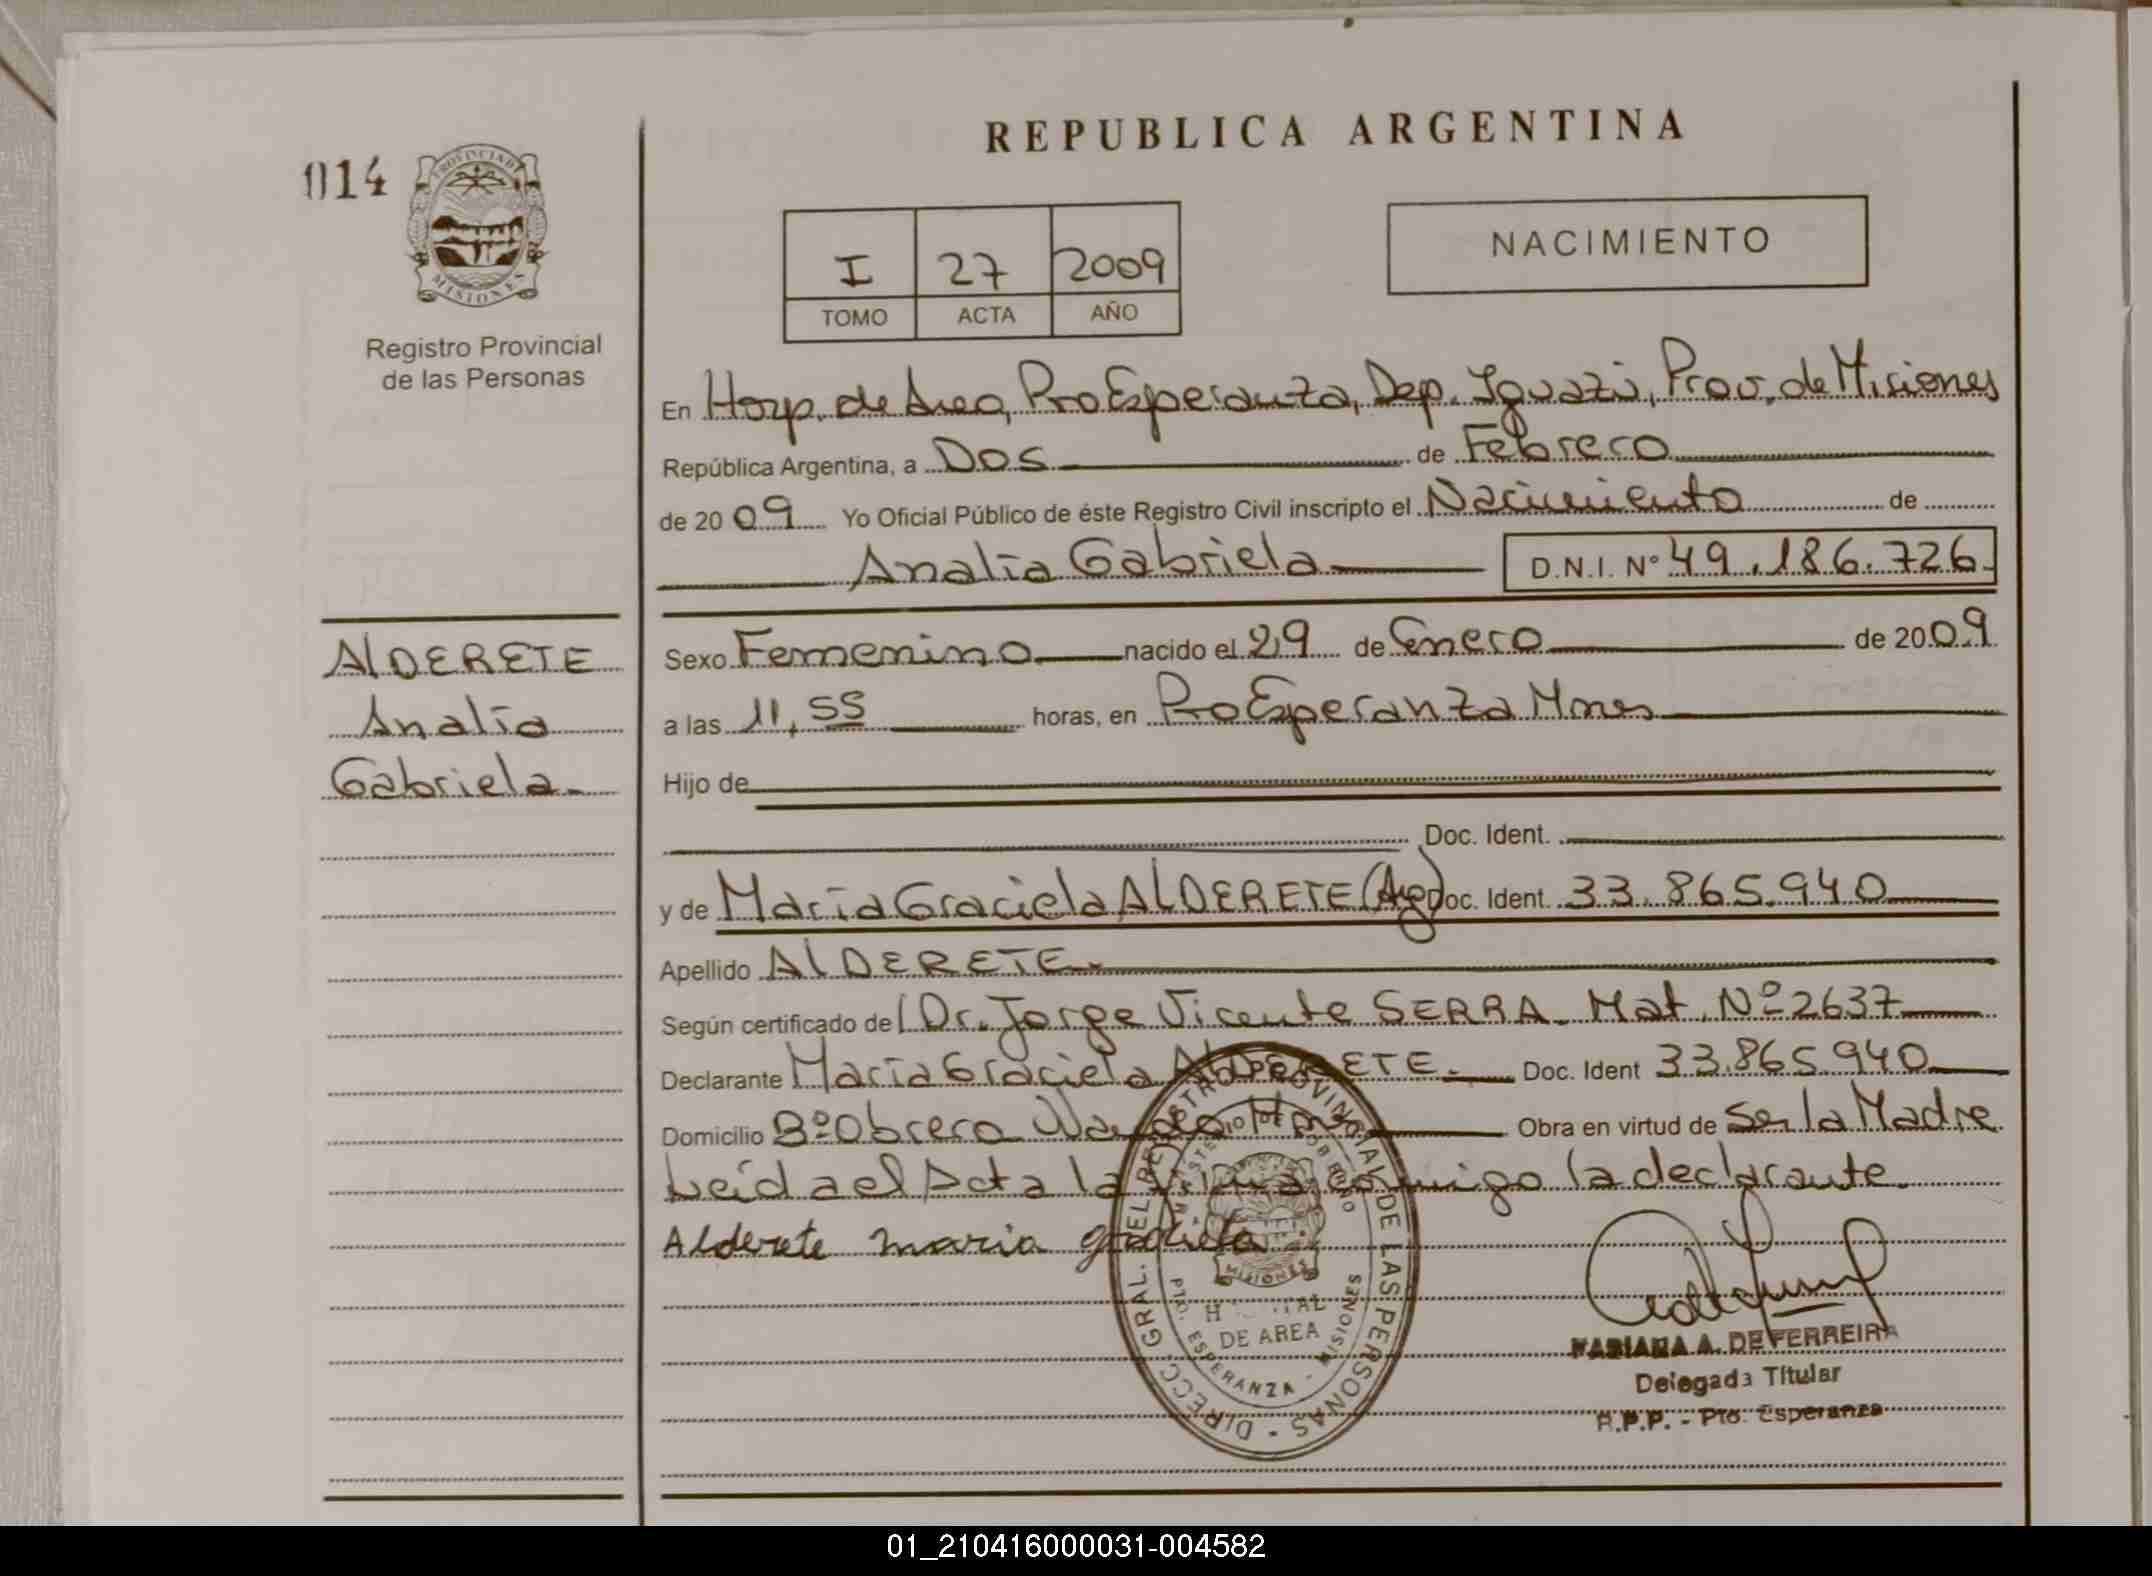 REPUBLICA ARGENTINA
014
PROVINCIA DE
MISIONES
Registro Provincial
de las Personas
I 27 2009
TOMO ACTA AÑO
NACIMIENTO
En Hosp. de Area, Pto Esperanza, Dep. Iguazú, Prov. de Misiones
República Argentina, a Dos de Febrero
de 2009 Yo Oficial Público de éste Registro Civil inscripto el Nacimiento de
Analía Gabriela D.N.I. Nº 49.186.726
ALDERETE
Analía
Gabriela
Sexo Femenino nacido el 29 de Enero de 2009
a las 11,55 horas, en Pto Esperanza Mnes
Hijo de
Doc. Ident.
y de María Graciela ALDERETE (Arg) Doc. Ident. 33.865.940
Apellido ALDERETE.
Según certificado del Dr. Jorge Vicente SERRA. Mat. Nº 2637
Declarante María Graciela ALDERETE. Doc. Ident 33.865.940
Domicilio Bº Obrero Wanda Mnes Obra en virtud de Ser la Madre
Leída el Acta la firma conmigo la declarante.
Alderete maria graciela
DIRECC. GRAL. DEL REGISTRO PROVINCIAL DE LAS PERSONAS
MINISTERIO DE GOBIERNO
MISIONES
DE AREA
PTO. ESPERANZA - MISIONES
MARIANA A. DE FERREIRA
Delegada Titular
R.P.P. - Pto. Esperanza
01_210416000031-004582